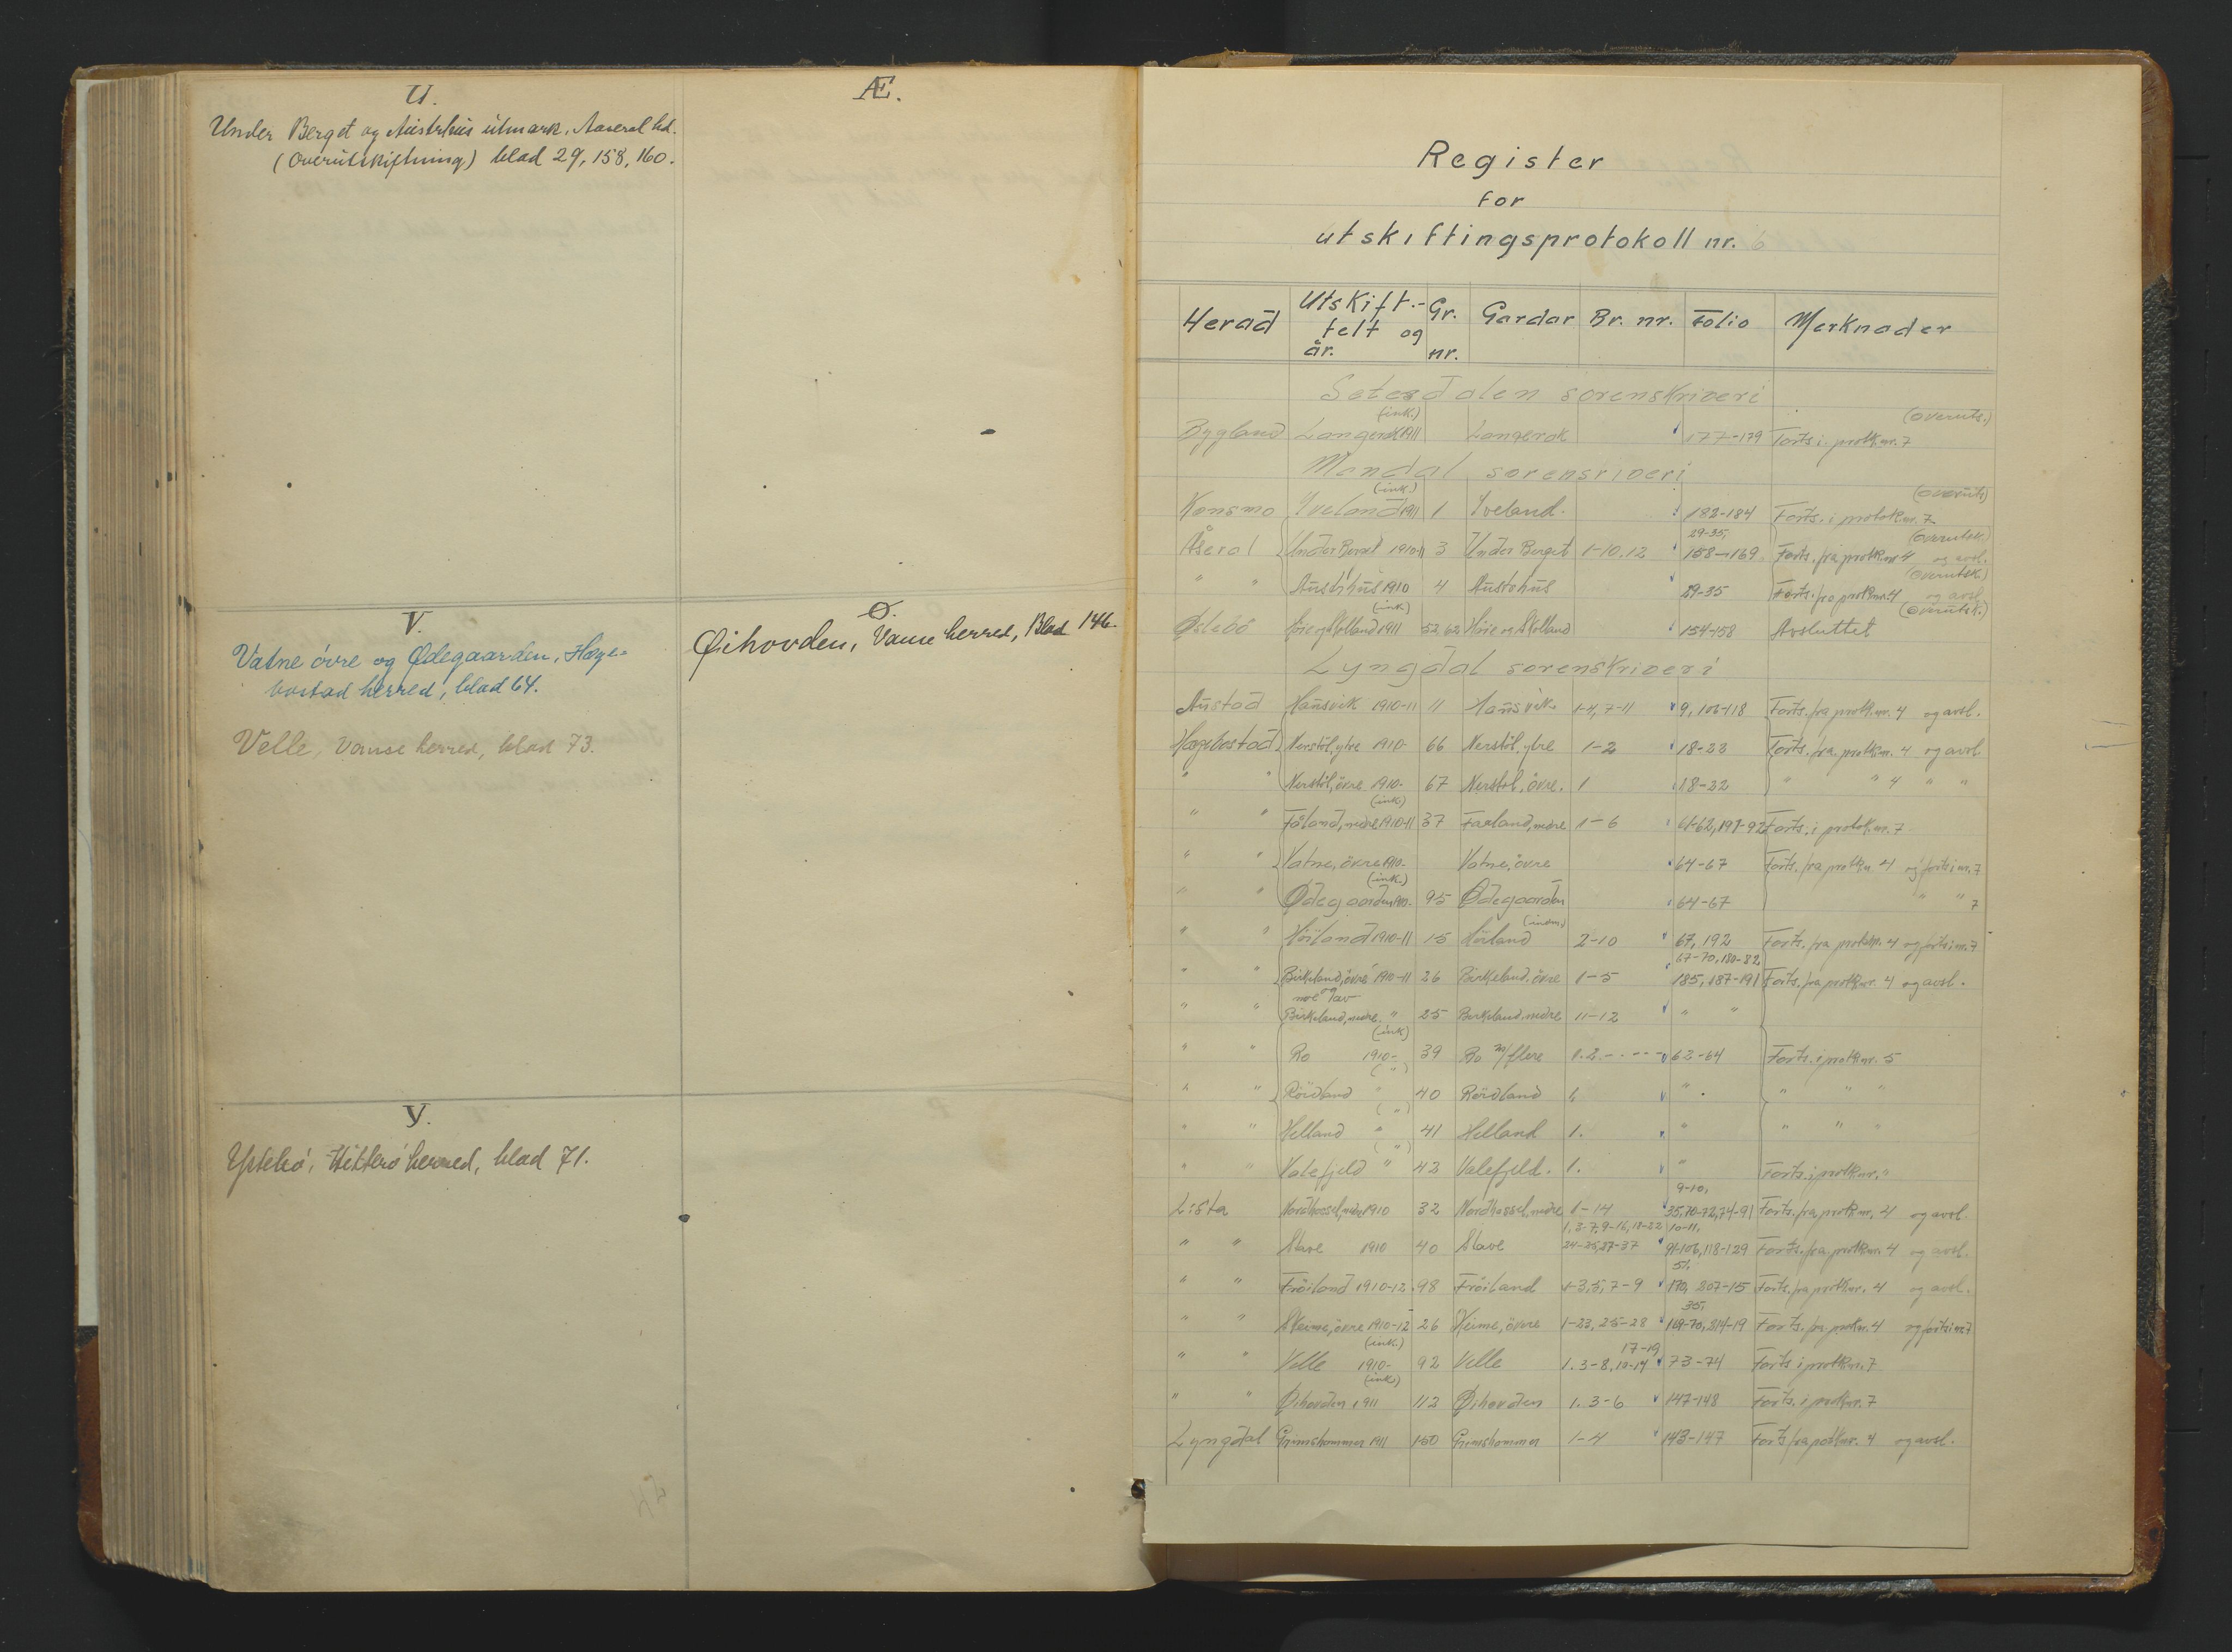 U.
Under Berget og Austrhus utmark, Aaseral hd.
(Overutskiftning) blad 29, 158, 160.
Æ.
V.
Vatne övre og Ødegaarden, Hæge-
bostad herred, blad 64.
Velle, Vanse herred, blad 73.
Ø.
Øihovden, Vanse herred, Blad 146.
Y.
Ystebö, Hitterö herred, blad 71.
Register
for
utskiftingsprotokoll nr. 6
Herad Utskift.- felt og år. Gr. nr. Gardar Br. nr. Folio Merknader
Setesdalen sorenskriveri
Bygland Langerak 1911 (ink.) Langerak 177-179 Forts. i protk.nr. 7 (overuts.)
Mandal sorensriveri
Konsmo Iveland 1911 (ink.) 1 Iveland. 182-184 Forts. i protok.nr. 7 (overuts)
Åseral Under Berget 1910-11 3 Under Berget 1-10.12 29-35, 158-169 Forts. fra protk.nr 4 og avsl. (overutsk.)
" " Austrhus 1910 4 Austrhus 29-35 Forts. fra protk.nr. 4 og avsl. (overutsk)
Øslebö Höie og Skolland 1911 (ink) 52, 62 Höie og Skolland 154-158 Avsluttet (overutsk.)
Lyngdal sorenskriveri
Austad Hausvik 1910-11 11 Hausvik 1-4, 7-11 9, 106-118 Forts. fra protk.nr. 4 og avsl.
Hægebostad Nerstöl, ytre 1910- 66 Nerstöl, ytre 1-2 18-22 Forts. fra protk.nr. 4 og avsl.
" " Nerstöl, övre 1910- 67 Nerstöl, övre. 1 18-22 " " 4 " "
" " Fåland, nedre 1910-11 (ink.) 37 Faaland, nedre 1-6 61-62, 191-92 Forts. i protok.nr. 7
" " Vatne, övre 1910- Vatne, övre 64-67 Forts. fra protk.nr 4 og forts i nr. 7
" " Ødegaarden 1910- (ink.) 95 Ødegaarden 64-67 " " 7
" " Höiland 1910-11 15 Höiland 2-10 67, 192 Forts. fra protok.nr. 4 og forts i nr. 7
" " Birkeland, övre 1910-11 26 Birkeland. övre 1-5 67-70, 180-82 185, 187-191 Forts. fra protk.nr. 4 og avsl.
" " noe av Birkeland, nedre. " 25 Birkeland. nedre 11-12 " "
" " Ro 1910- (ink) 39 Ro m/flere 1.2. 62-64 Forts. i protk.nr. 5
" " Röidland " (") 40 Röidland 1, " " " "
" " Helland " (") 41 Helland 1. " " " "
" " Valefjeld " (") 42 Valefjeld. 1. " Forts. i protk.nr. "
Lista Nordhassel, nedre 1910 32 Nordhassel, nedre 1-14 9-10, 35, 70-72, 74-91 Forts. fra protk.nr. 4 og avsl.
" " Stave 1910 40 Stave 1, 3-7, 9-16, 18-22 24-25, 27-37 10-11, 91-106, 118-129 Forts. fra protk.nr. 4 og avsl.
" " Fröiland 1910-12 98 Fröiland 1-3, 5, 7-9 51, 170, 207-15 Forts. fra protk.nr. 4 og avsl.
" " Skeime, övre 1910-12 26 Skeime, övre 1-23, 25-28 35, 169-70, 214-19 Forts. fra protk.nr. 4 og forts i nr. 7
" " Velle 1910- (ink.) 92 Velle 1. 3-8, 10-14 17-19 73-74 Forts i protk.nr. 7
" " Øihovden 1911 (ink) 112 Øihovden 1. 3-6 147-148 Forts. i protk.nr. 7
Lyngdal Grimshammer 1911 160 Grimshammer 1-4 143-147 Forts fra protk.nr. 4 og avsl.